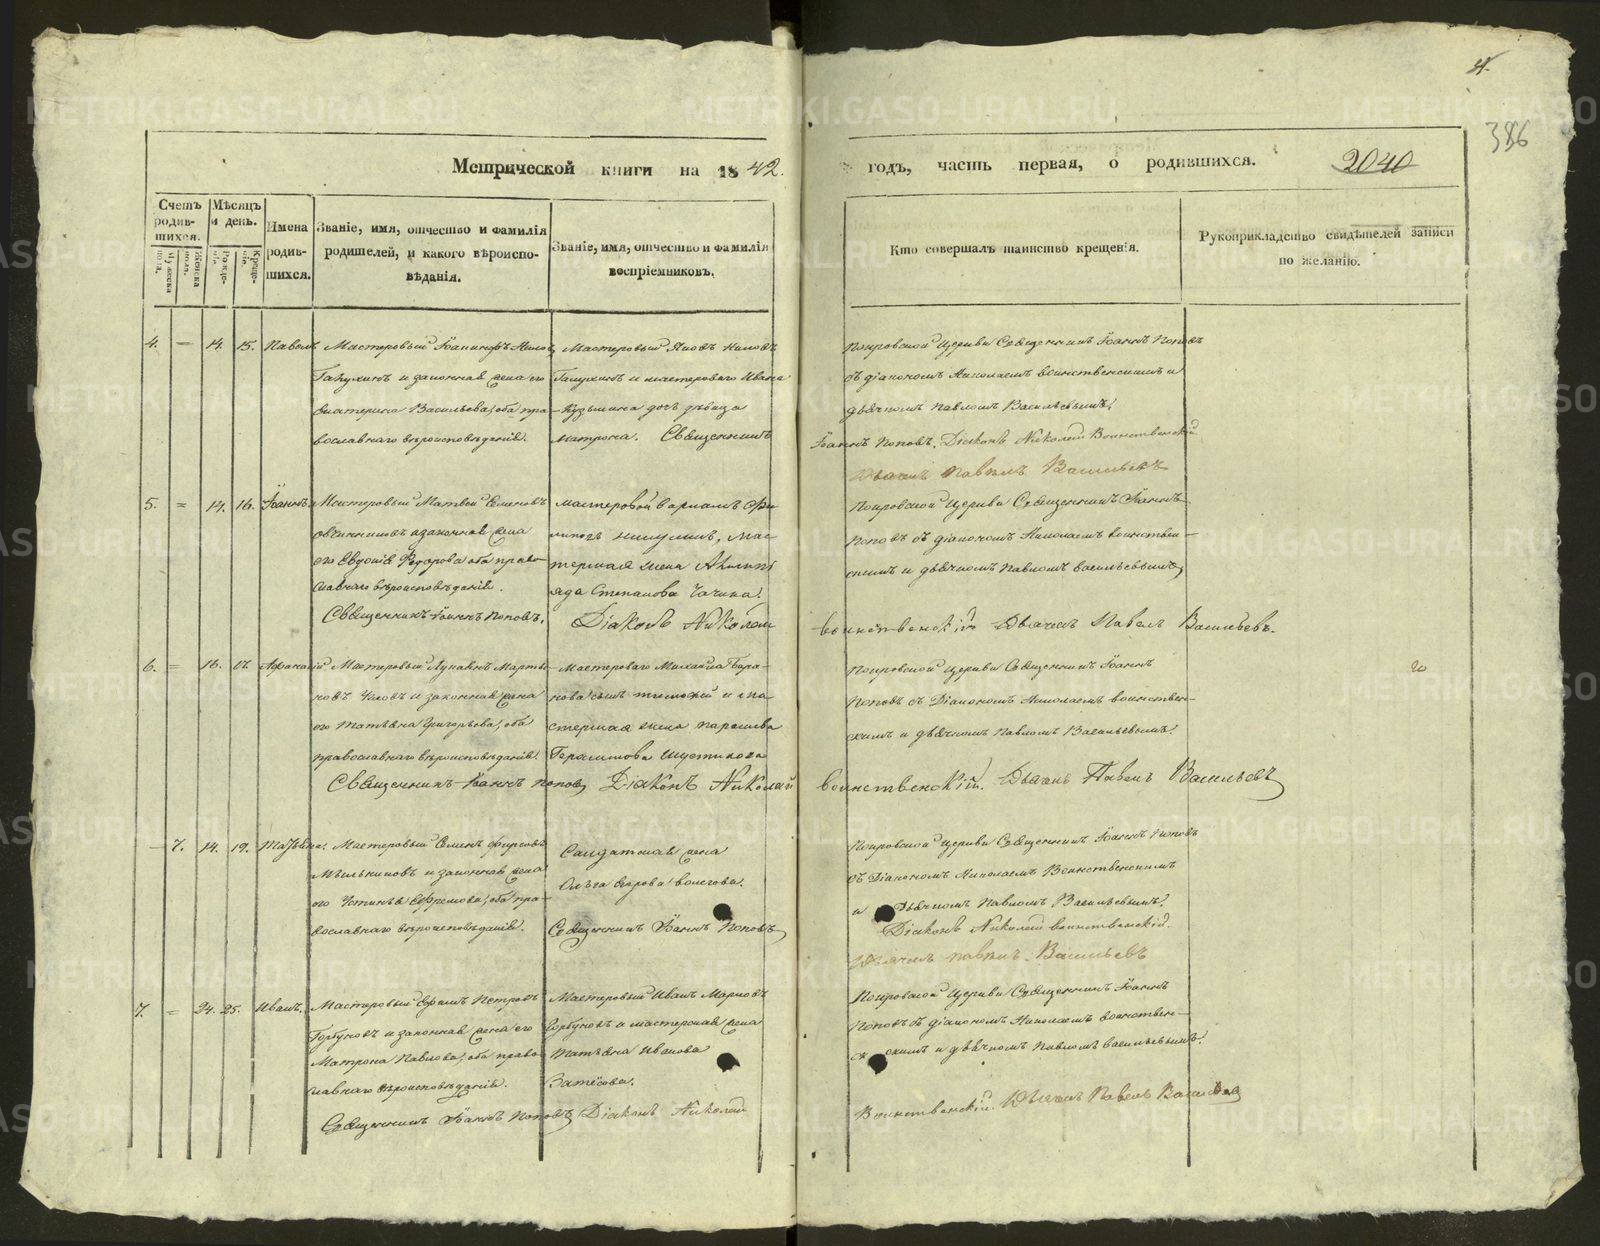 31.
386
Метрической книги на 1842.
годъ, часть первая, о родившихся.
2040
Счетъ родив-шихся.
Мужеска пола.
Женска пола.
Мѣсяцъ и день.
Рожде-нія.
Креще-нія.
Имена родив-шихся.
Званіе, имя, отчество и фамилія
родителей, и какого вѣроиспо-
вѣданія.
Званіе, имя, отчество и фамилія
воспріемниковъ.
Кто совершалъ таинство крещенія.
Рукоприкладство свидѣтелей записи
по желанію.
4. — 14. 15. Павелъ
Мастеровый
и законная жена его
Екатерина Васильева, оба пра-
вославнаго вѣроисповѣданія.
Мастеровый Яковъ
и мастероваго Ивана
Кузьмина дочь дѣвица
Матрона. Священникъ
Покровской Церкви Священникъ Іоаннъ Поповъ
съ діакономъ Николаемъ Воинственскимъ и
дьячкомъ Павломъ Васильевымъ.
Іоаннъ Поповъ. Діаконъ Николай Воинственскій
Дьячекъ Павелъ Васильевъ
5. = 14. 16. Іоаннъ
Мастеровый Матвей Семеновъ
Овчинниковъ и законная жена
его Евдокія Федорова оба право-
славнаго вѣроисповѣданія.
Священникъ Іоаннъ Поповъ.
мастеровой
мас-
терская жена
Степанова
Діаконъ Николай
Покровской Церкви Священникъ Іоаннъ
Поповъ съ діакономъ Николаемъ Воинствен-
скимъ и дьячкомъ Павломъ Васильевымъ
Воинственскій Дьячекъ Павелъ Васильевъ.
6. = 16. 17. Афанасій
Мастеровый Лукьянъ Марты-
новъ и законная жена
его Татьяна Григорьева, оба
православнаго вѣроисповѣданія.
Священникъ Іоаннъ Поповъ
Мастероваго Михаила
сынъ Тимофей и ма-
стерская жена Парасковья
Герасимова Шустикова
Діаконъ Николай
Покровской Церкви Священникъ Іоаннъ
Поповъ съ Діакономъ Николаемъ Воинствен-
скимъ и дьячкомъ Павломъ Васильевымъ.
Воинственскій. Дьячекъ Павелъ Васильевъ
— 7. 14. 19. Татьяна.
Мастеровый Семенъ Фирсовъ
Мѣльниковъ и законная жена
его Устинья Ефремова, оба пра-
вославнаго вѣроисповѣданія.
Солдатская жена
Ольга Егорова
Священникъ Іоаннъ Поповъ
Покровской Церкви Священникъ Іоаннъ Поповъ
съ Діакономъ Николаемъ Воинственскимъ
и Дьячкомъ Павломъ Васильевымъ
Діаконъ Николай Воинственскій.
Дьячекъ Павелъ Васильевъ
7. = 24. 25. Иванъ.
Мастеровый Ефимъ Петровъ
Горбуновъ и законная жена его
Матрона Павлова, оба право-
славнаго вѣроисповѣданія.
Священникъ Іоаннъ Поповъ
Мастеровый Иванъ Марковъ
Горбуновъ и мастерская жена
Татьяна Иванова
Діаконъ Николай
Покровской Церкви Священникъ Іоаннъ
Поповъ съ діакономъ Николаемъ Воинствен-
скимъ и дьячкомъ Павломъ Васильевымъ.
Воинственскій. Дьячекъ Павелъ Васильевъ
METRIKI.GASO-URAL.RU